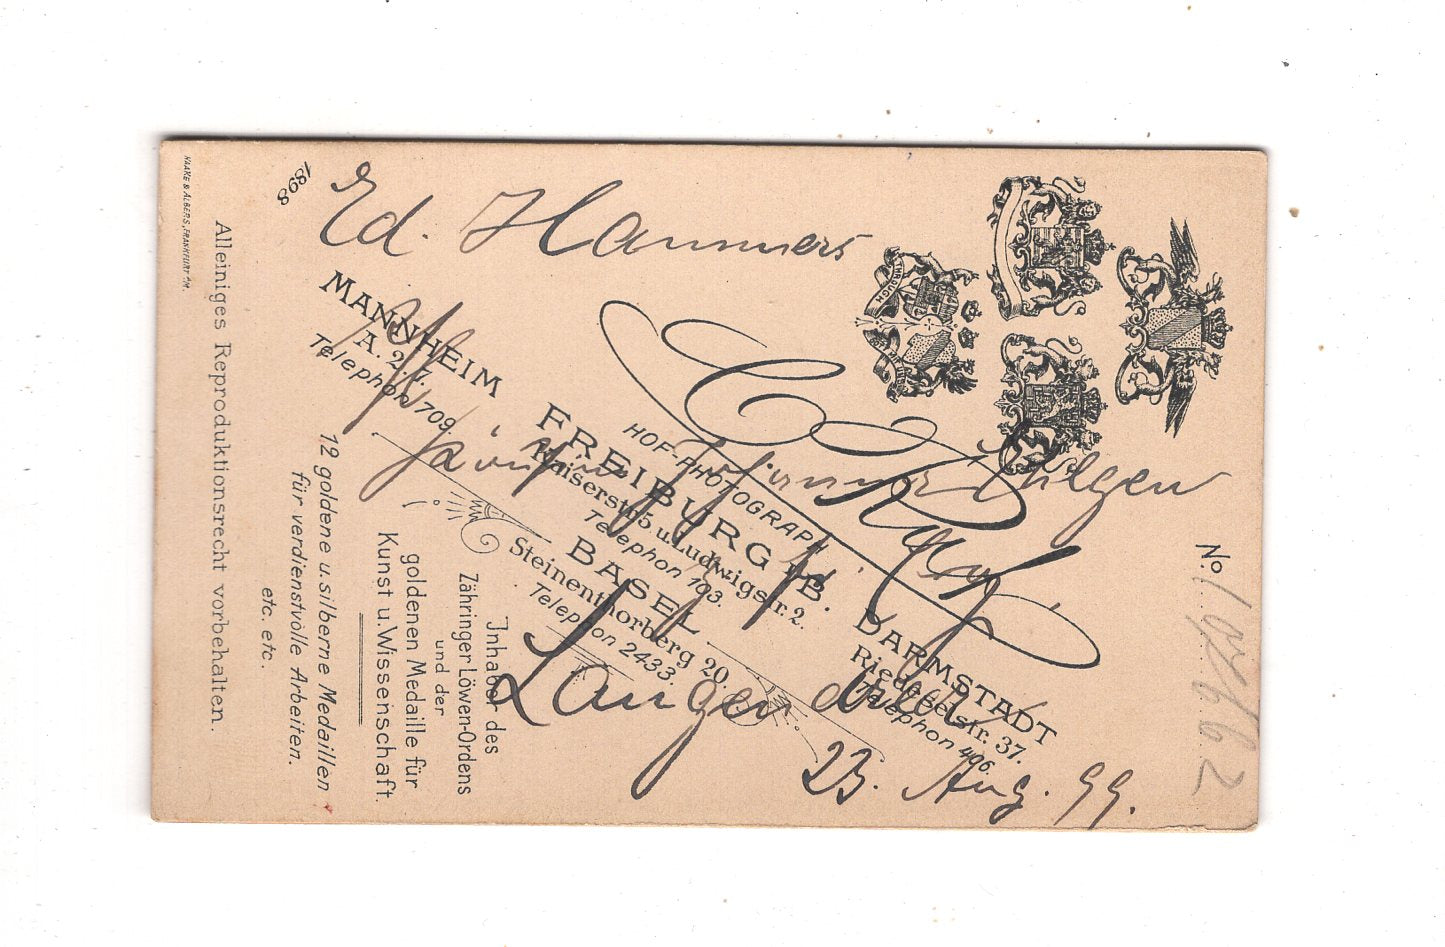 Ed. Hammers
Hilgen
Langendreer
23. Aug. 99.
No
C. Ruf
HOF-PHOTOGRAPH
MANNHEIM
A. 2.7.
Telephon 709.
FREIBURG i/B.
Kaiserstr.5 u.Ludwigstr.2.
Telephon 103.
BASEL
Steinenthorberg 20.
Telephon 2433.
DARMSTADT
Riedeselstr. 37.
Telephon 406.
Inhaber des
Zähringer Löwen-Ordens
und der
goldenen Medaille für
Kunst u.Wissenschaft.
12 goldene u.silberne Medaillen
für verdienstvolle Arbeiten.
etc. etc.
Alleiniges Reproduktionsrecht vorbehalten.
1898
HAAKE & ALBERS, FRANKFURT A/M.
THROUGH